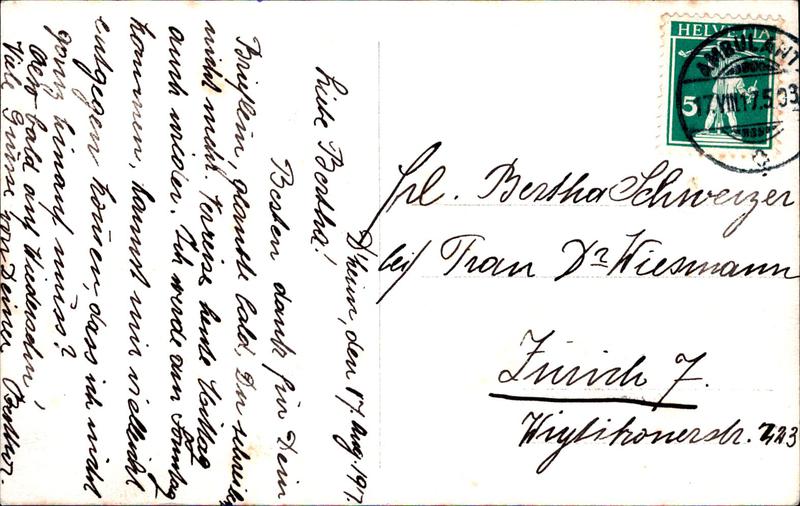 D'heim, den 17. Aug. 1917.
Liebe Bertha!
Besten dank für Dein
Brieflein, glaubte bald, Du schreibst
nicht mehr. Verreise heute
auch wieder. Ich werde am Sonntag
kommen, kannst mir vielleicht
entgegen kommen, dass ich nicht
ganz hinauf muss?
Also bald auf Wiedersehn,
Viele Grüsse von Deiner
HELVETIA
5
AMBULANT
17.VIII.17.5
Frl. Bertha Schweizer
bei Frau Dr. Wiesmann
Zürich 7.